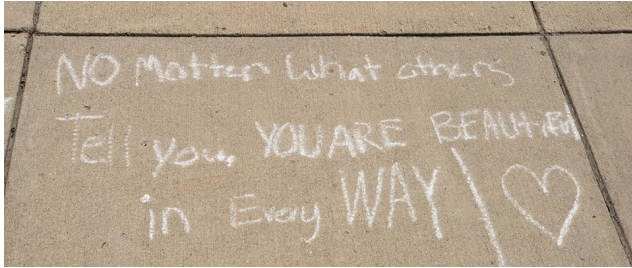 NO Matter What others
Tell you, YOU ARE BEAUtifUl
in Every WAY